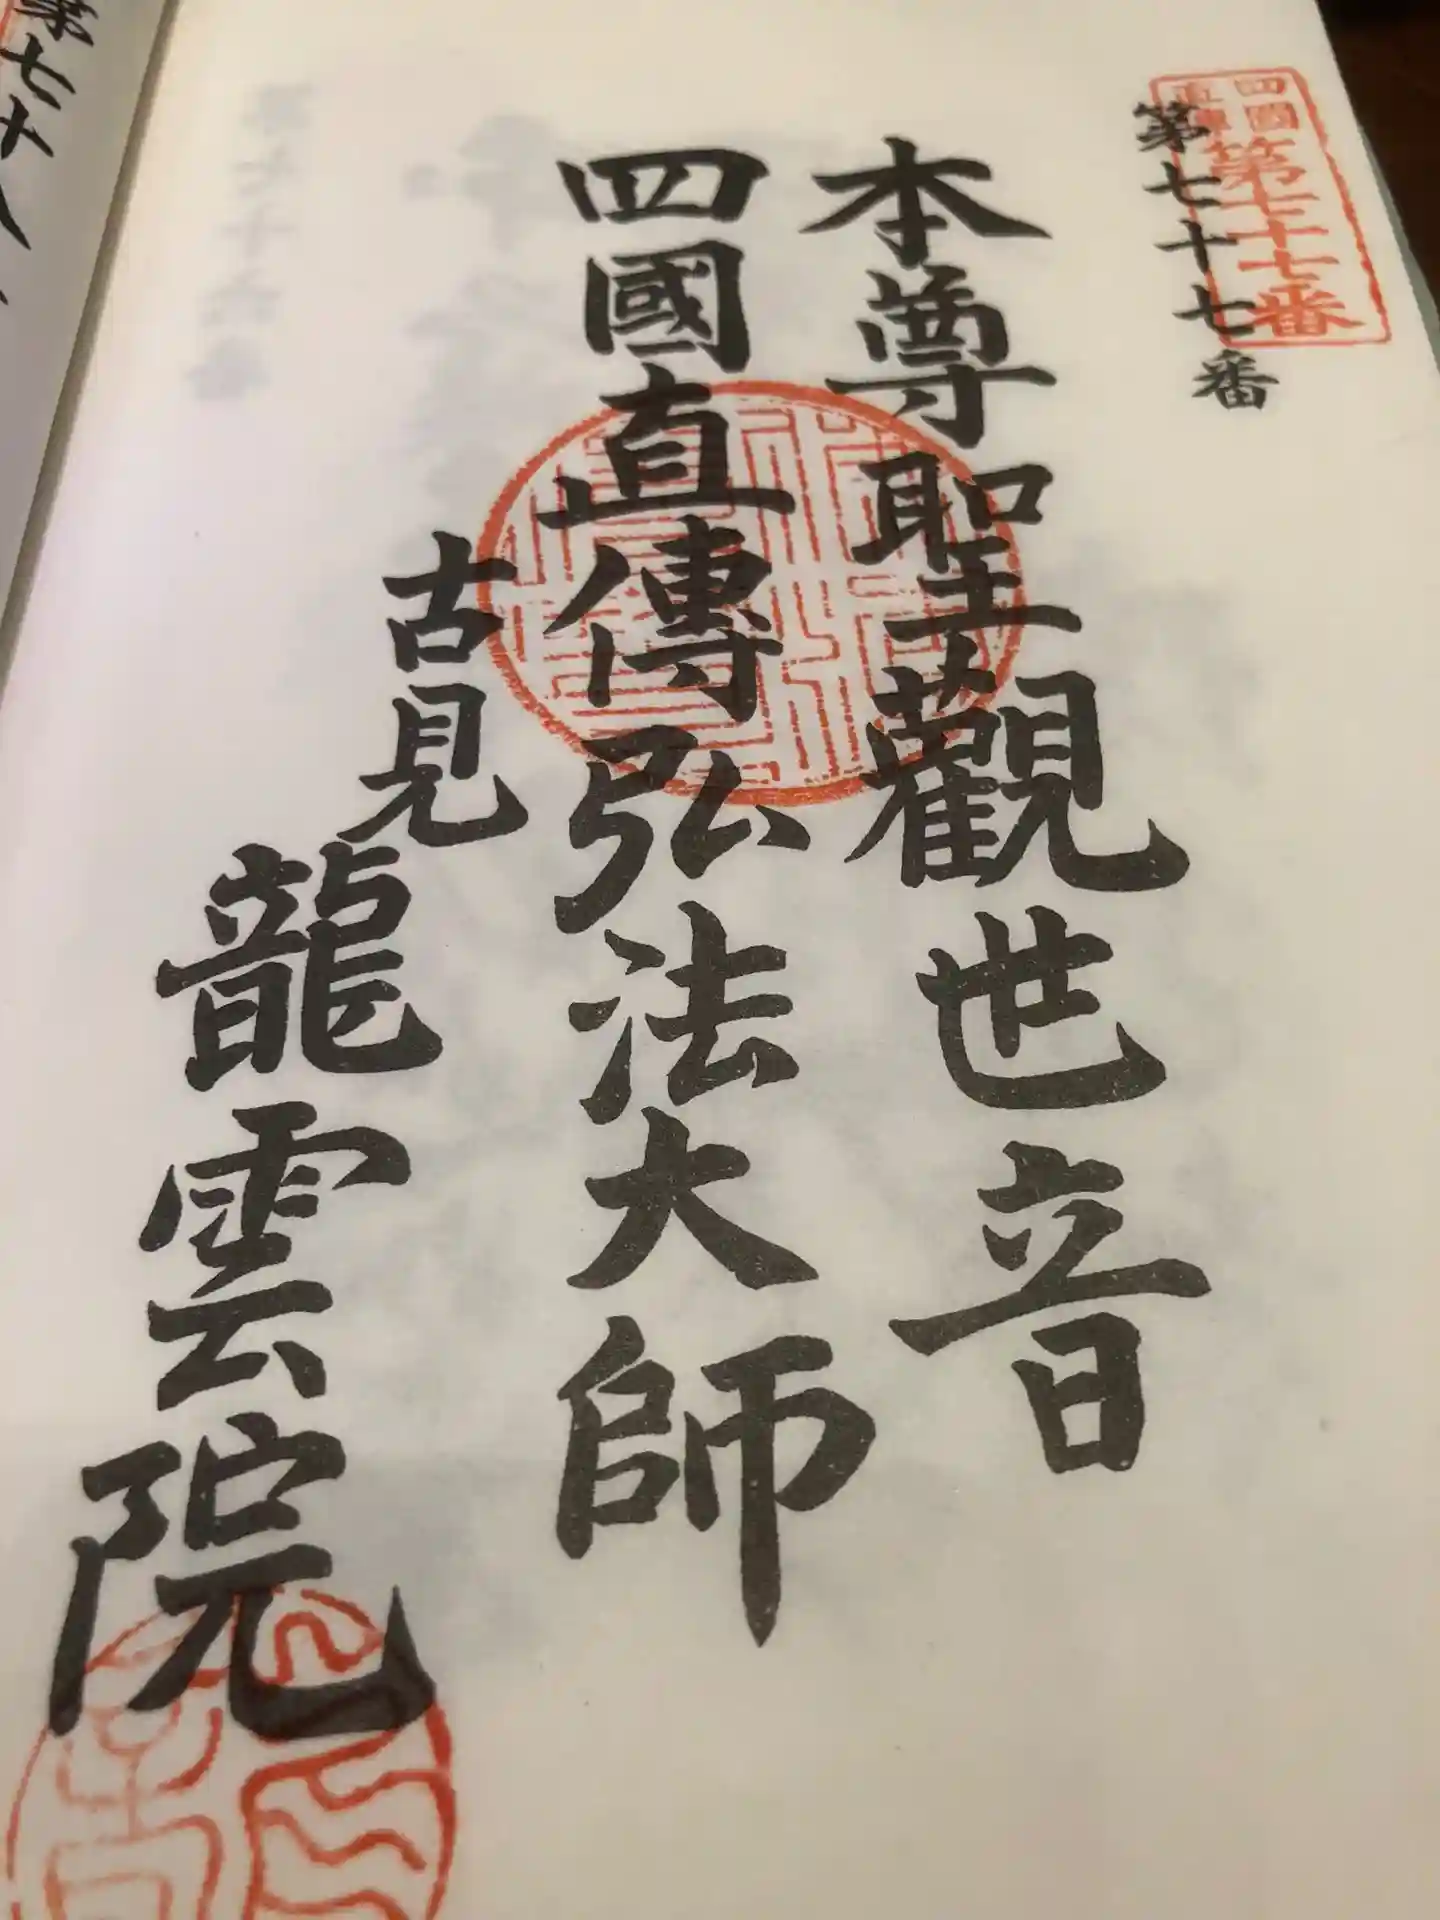 四國
直傳
第七十七番
第七十七番
本尊聖觀世音
四國直傳弘法大師
古見
龍雲院
第七十八